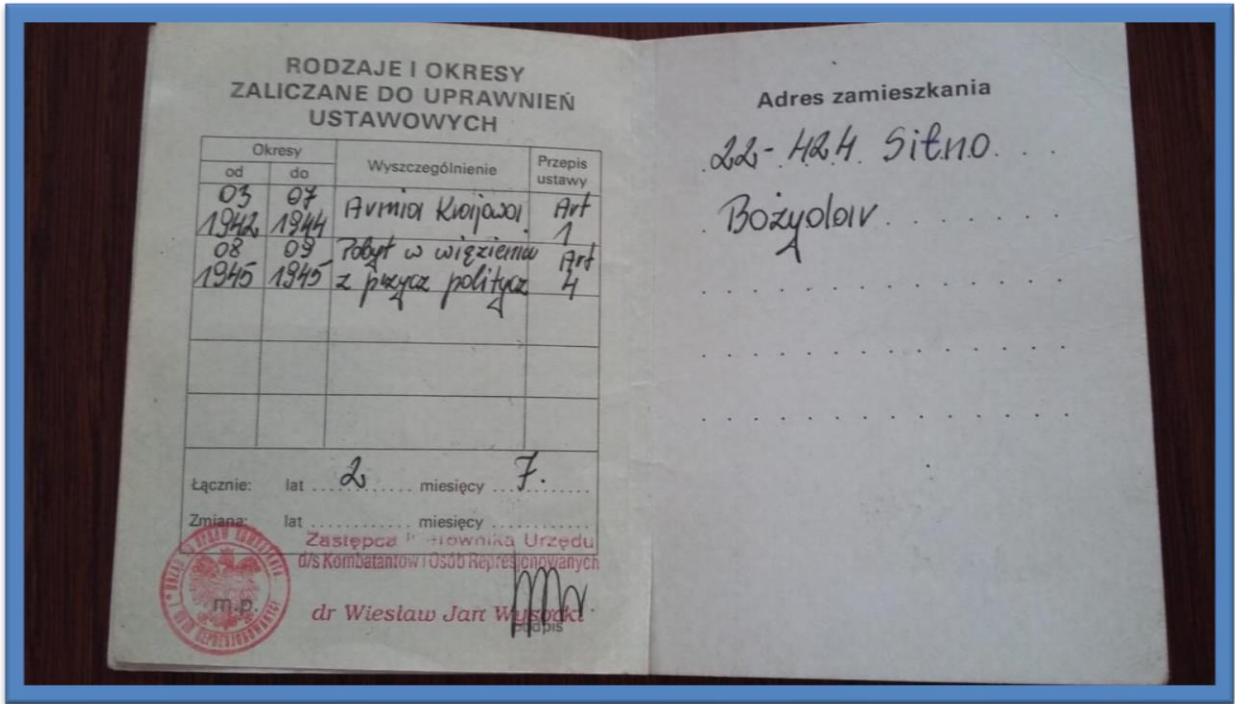 RODZAJE I OKRESY
ZALICZANE DO UPRAWNIEŃ
USTAWOWYCH
Okresy
od do
Wyszczególnienie
Przepis
ustawy
03 07
1942 1944
Armia Krajowa
Art
1
08 09
1945 1945
Pobyt w więzieniu
z przycz politycz
Art
4
Łącznie: lat 2 miesięcy 7.
Zmiana: lat miesięcy
Zastępca Kierownika Urzędu
d/s Kombatantów i Osób Represjonowanych
m.p.
dr Wiesław Jan Wysocki
podpis
Adres zamieszkania
22-424 Sitno
Bożydar